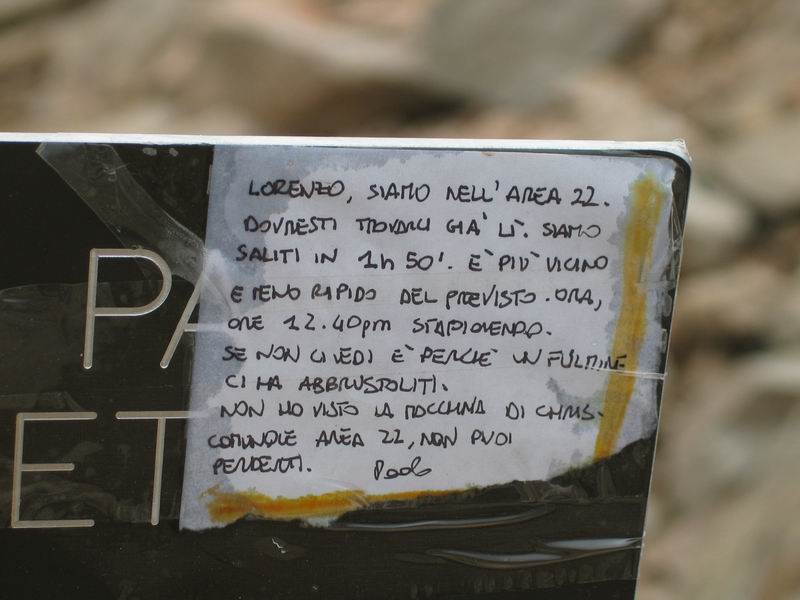 PA
ET
LORENZO, SIAMO NELL'AREA 22.
DOVRESTI TROVARCI GIA' LI'. SIAMO
SALITI IN 1h 50'. E' PIU' VICINO
E MENO RAPIDO DEL PREVISTO. ORA,
ORE 12.40pm STAPIOVENDO.
SE NON CI VEDI E' PERCHE' UN FULMINE
CI HA ABBRUSTOLITI.
NON HO VISTO LA MACCHINA DI CHRIS.
COMUNQUE AREA 22, NON PUOI
PERDERTI. Paolo